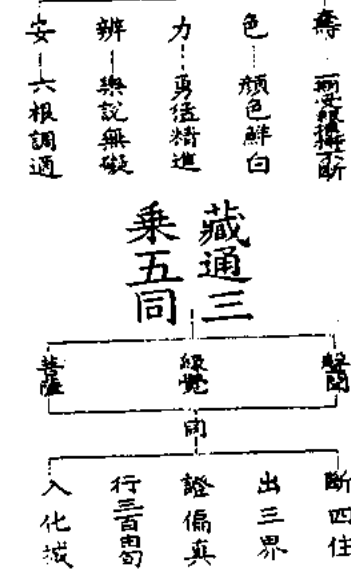 壽
命根相續不斷
色
顏色鮮白
力
勇猛精進
辨
樂說無礙
安
六根調適
藏通三
乘五同
聲聞
緣覺
菩薩
同
斷四住
出三界
證偏真
行三百由旬
入化城